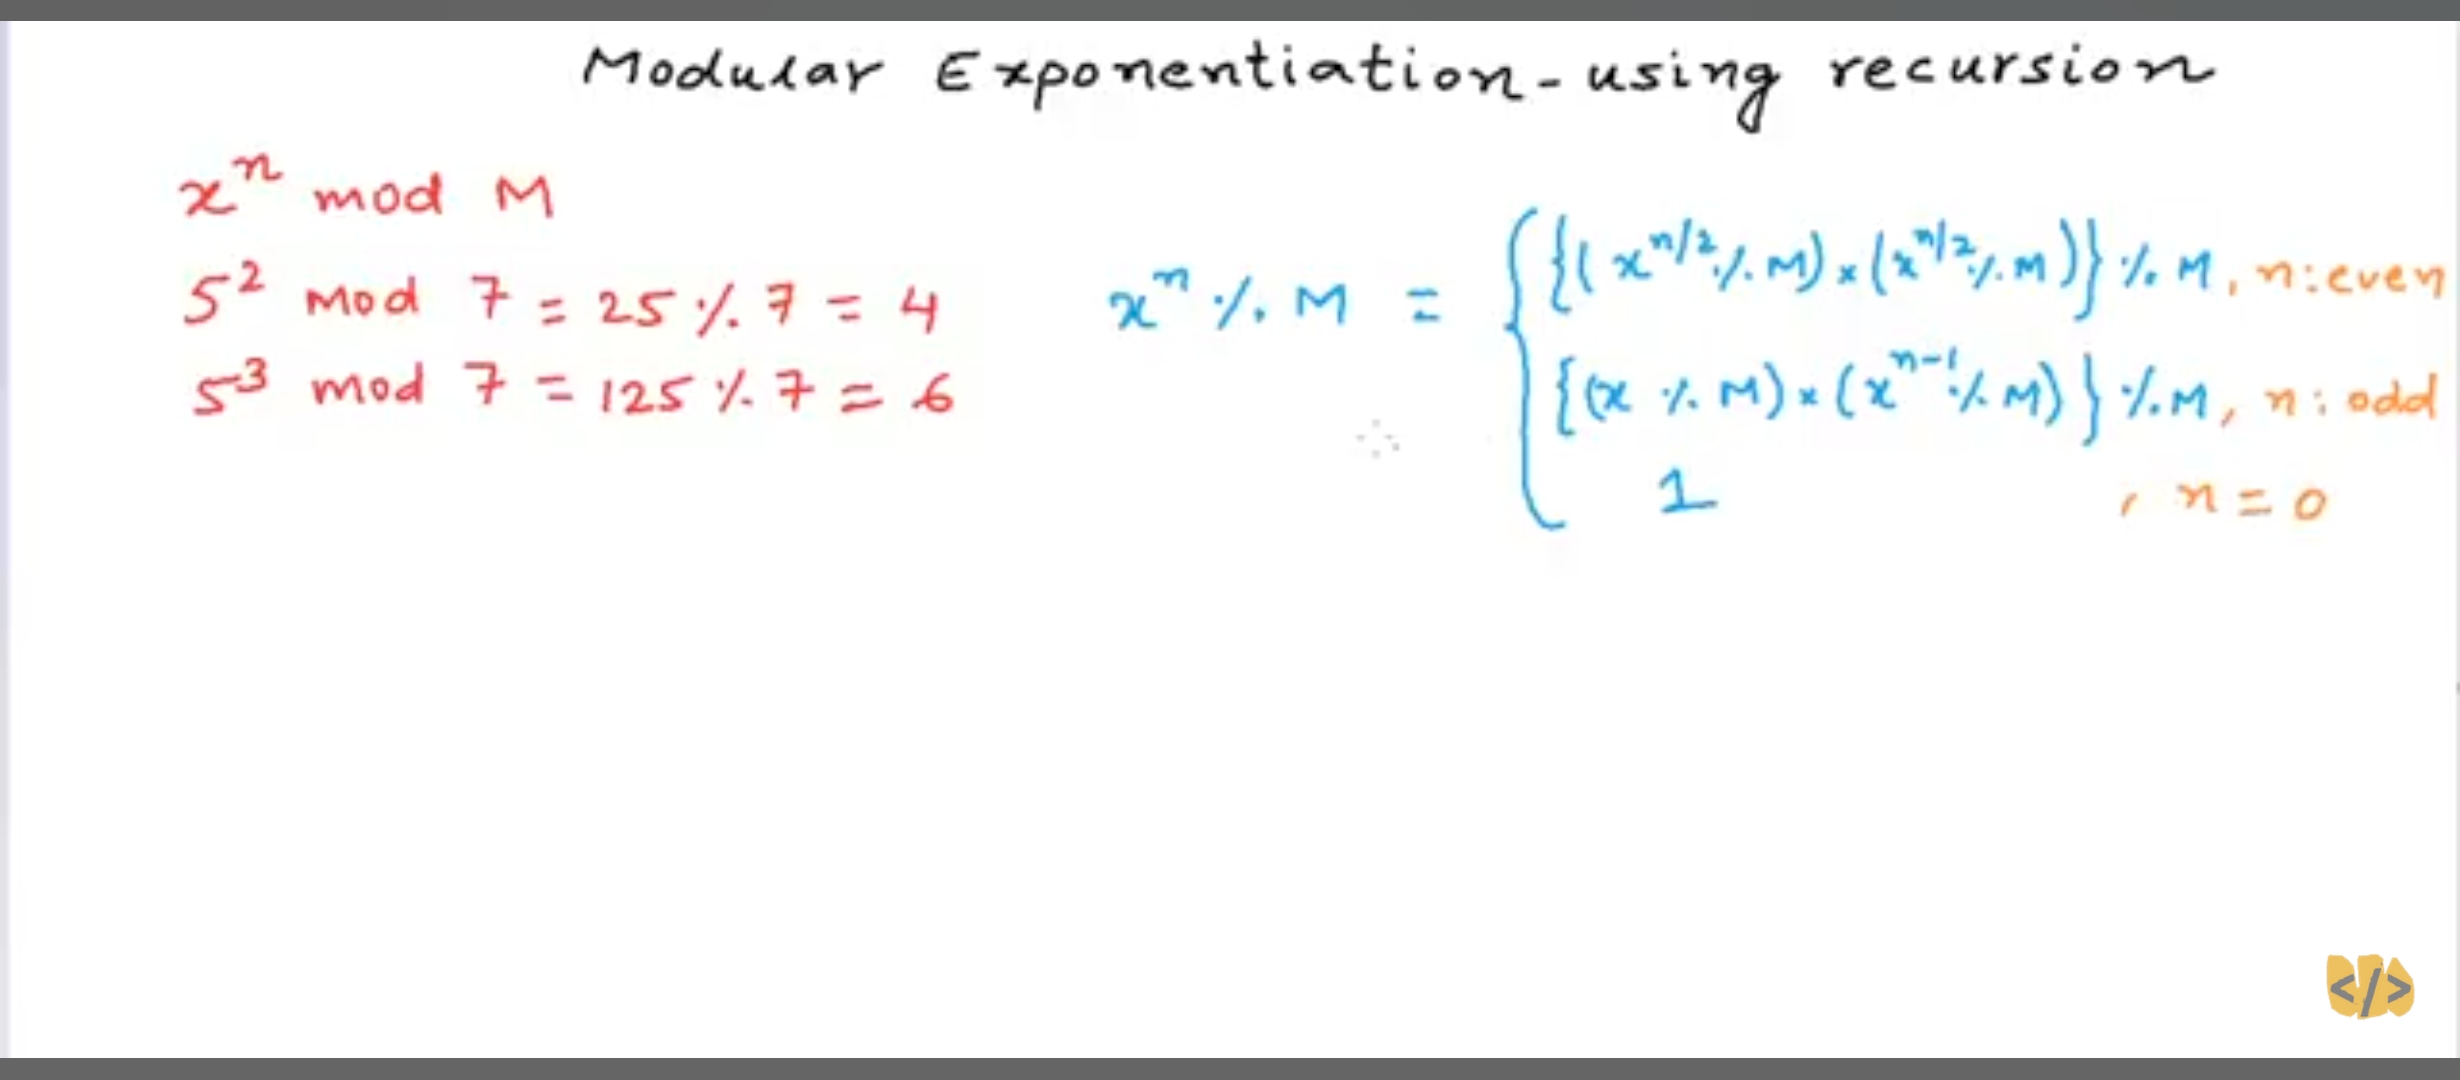 Modular Exponentiation - using recursion
xⁿ mod M
5² mod 7 = 25 % 7 = 4
5³ mod 7 = 125 % 7 = 6
xⁿ % M = { {(x^(n/2) % M) × (x^(n/2) % M)} % M, n : even
{(x % M) × (x^(n-1) % M)} % M, n : odd
1 , n = 0
</>